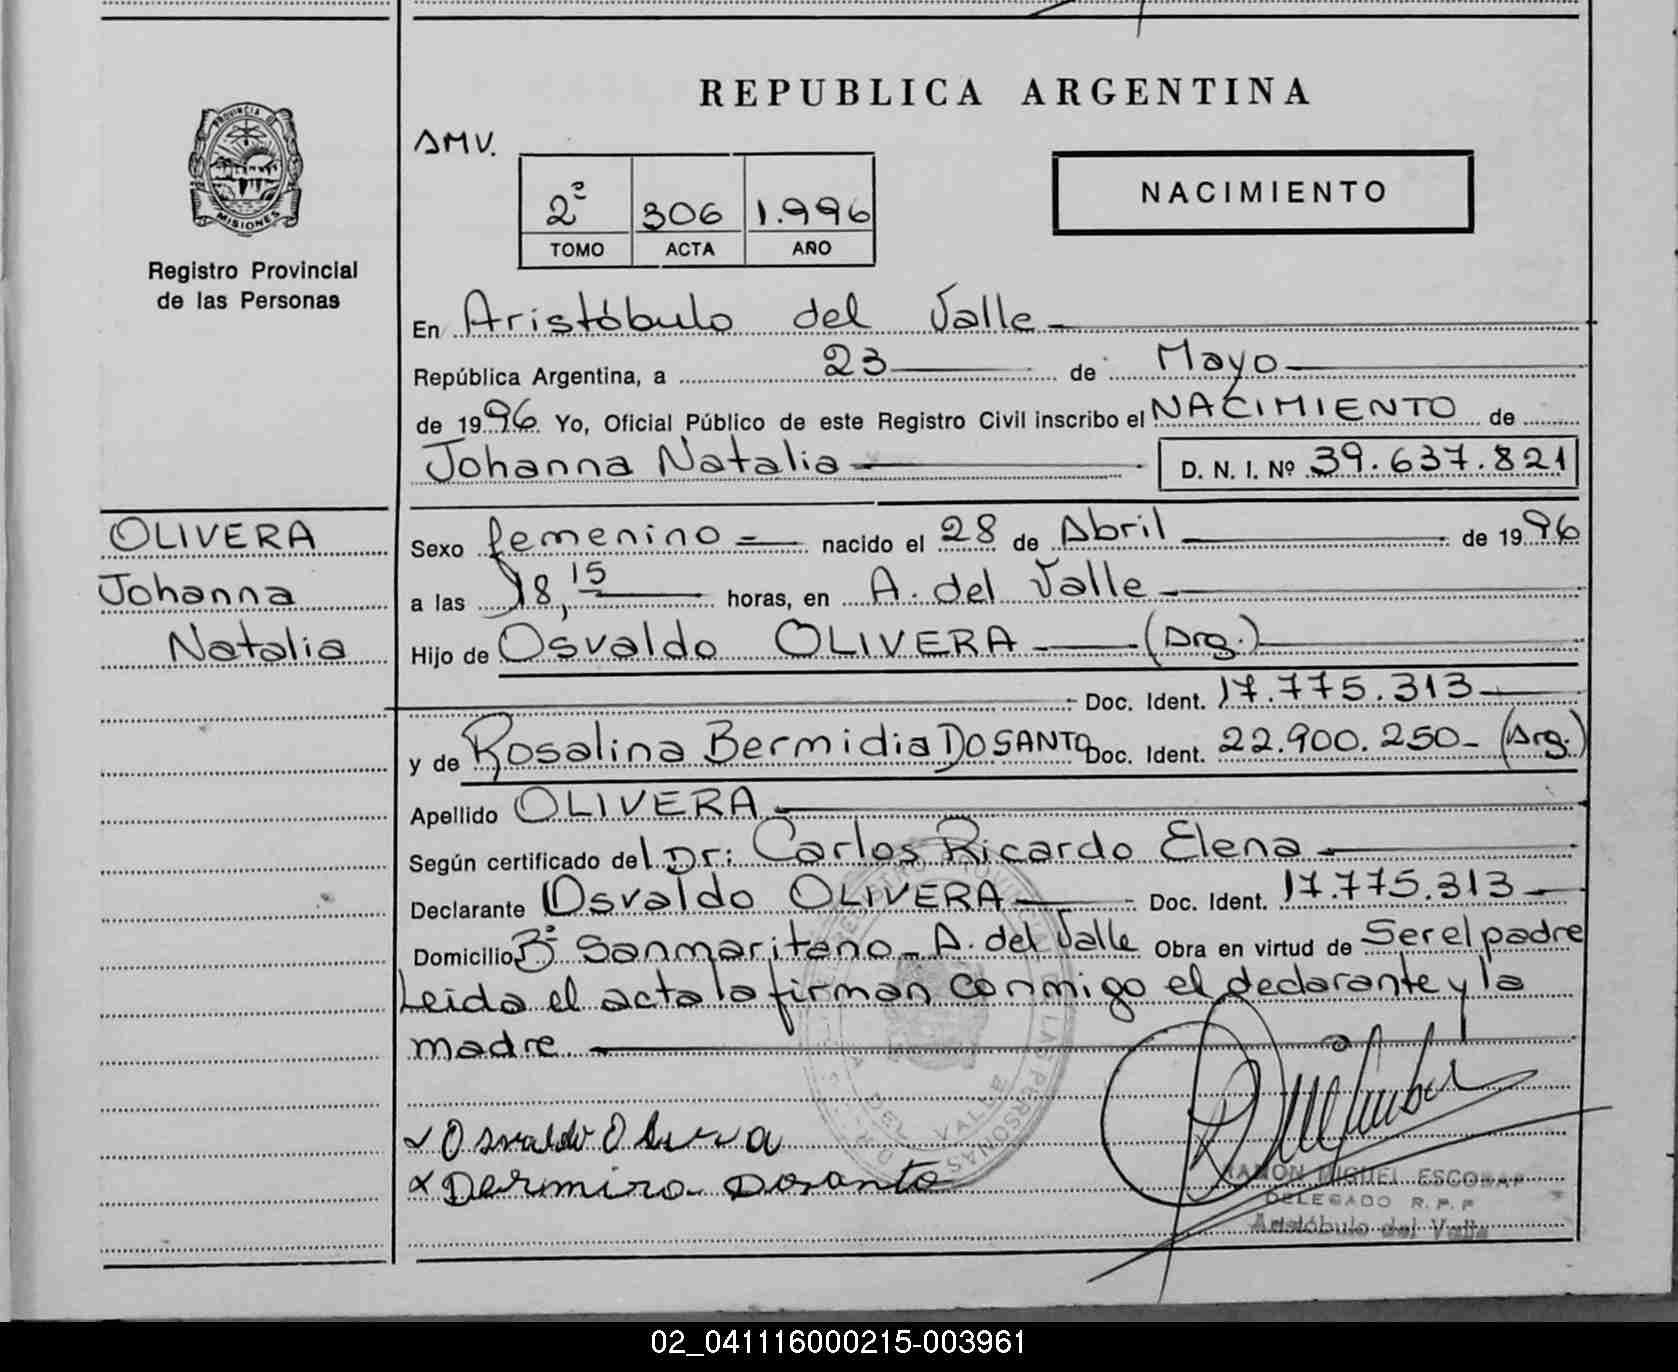 REPUBLICA ARGENTINA
PROVINCIA DE
MISIONES
Registro Provincial
de las Personas
AMV.
2º 306 1.996
TOMO ACTA AÑO
NACIMIENTO
En Aristóbulo del Valle
República Argentina, a 23 de Mayo
de 1996 Yo, Oficial Público de este Registro Civil inscribo el NACIMIENTO de
Johanna Natalia D. N. I. Nº 39.637.821
OLIVERA
Johanna
Natalia
Sexo femenino nacido el 28 de Abril de 1996
a las 18,15 horas, en A. del Valle
Hijo de Osvaldo OLIVERA (Arg.)
Doc. Ident. 17.775.313
y de Rosalina Bermidia DOSANTO Doc. Ident. 22.900.250- (Arg.)
Apellido OLIVERA
Según certificado del Dr: Carlos Ricardo Elena
Declarante Osvaldo OLIVERA Doc. Ident. 17.775.313
Domicilio Bº Sanmariteno - A. del Valle Obra en virtud de Ser el padre
Leida el acta la firman conmigo el declarante y la
madre
x Osvaldo Olivera
x Dermira Dosanto
RAMON MIGUEL ESCOBAR
DELEGADO R. P. P
Aristóbulo del Valle
02_041116000215-003961